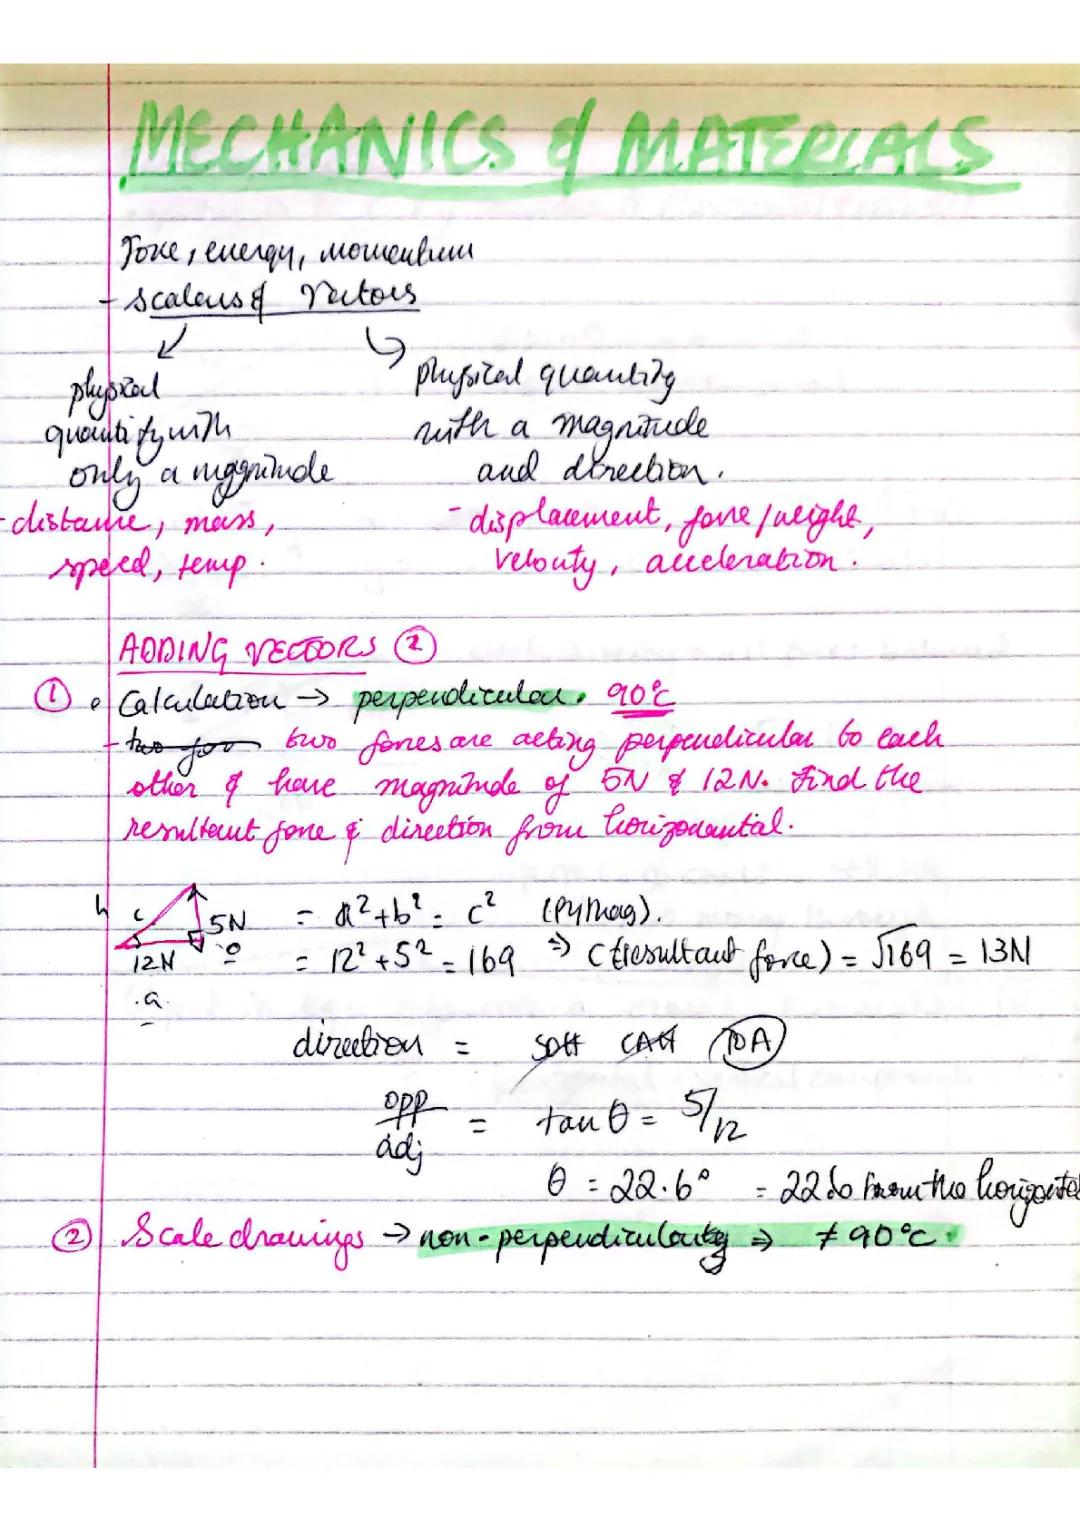 MECHANICS & MATERIALS
Force, energy, momentum
- Scalars & Vectors
physical quantity with only a magnitude
physical quantity
with a magnitude
and direction.
- distance, mass,
speed, temp.
- displacement, force/weight,
velocity, acceleration.
ADDING VECTORS ②
① • Calculation → perpendicular. 90°c
- two for two forces are acting perpendicular to each
other & have magnitude of 5N & 12N. Find the
resultant force & direction from horizonantal.
h c 5N = a²+b² = c² (Pythag).
12N o = 12² + 5² = 169 ⇒ C (resultant force) = √169 = 13N
a
direction = SOH CAH TOA
opp/adj = tan θ = 5/12
θ = 22.6° = 22.6 from the horizontal
② Scale drawings → non-perpendicularity ⇒ ≠ 90°c.